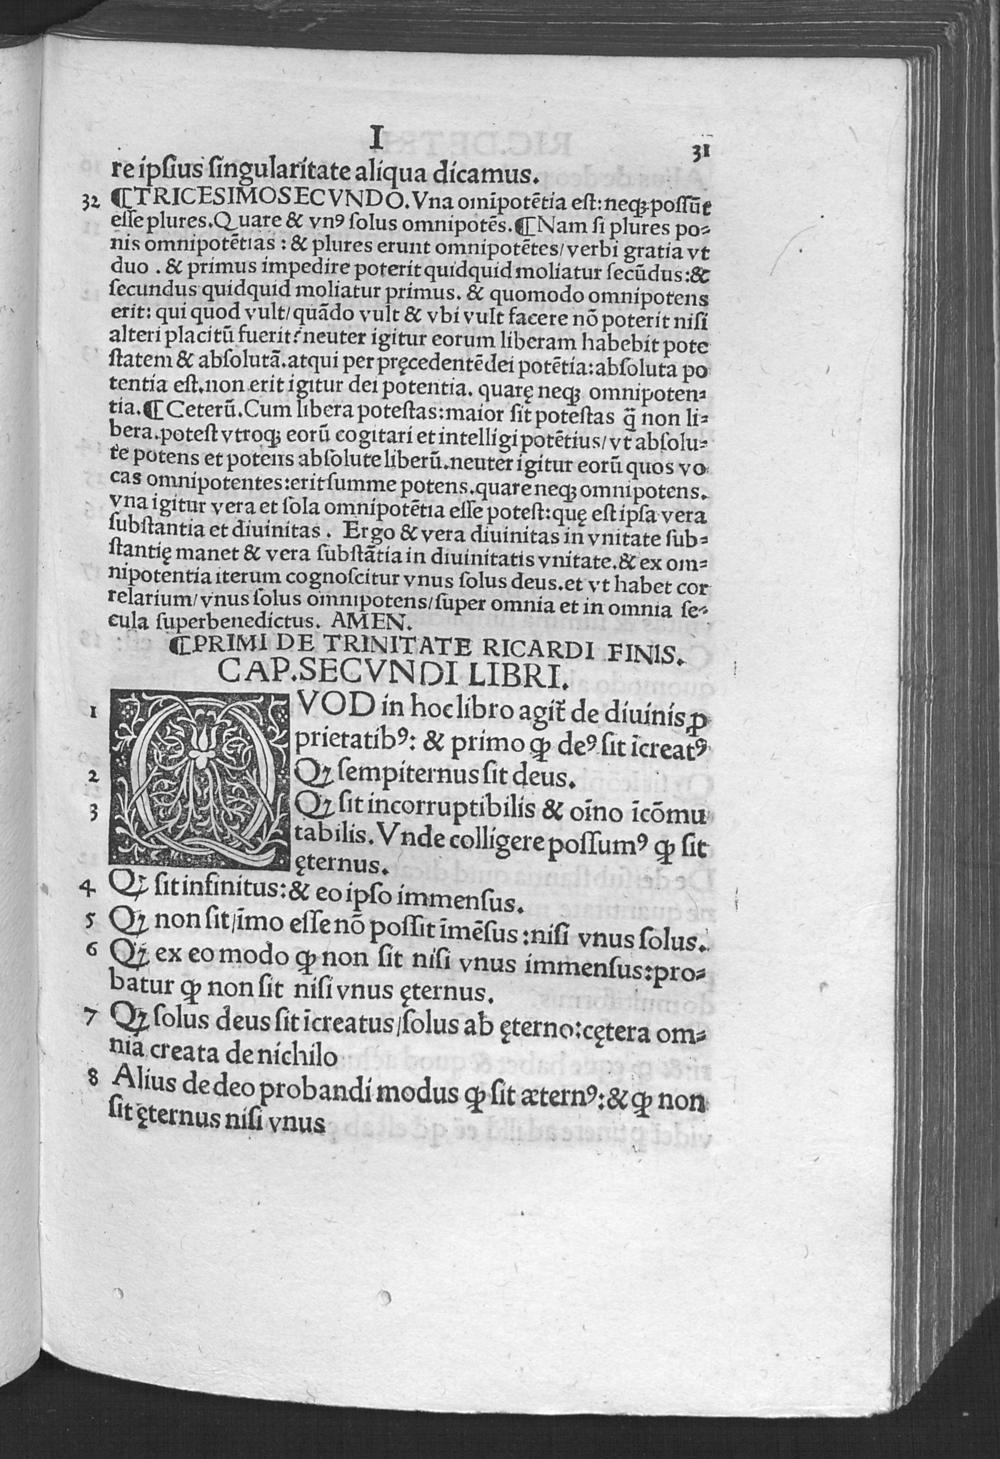 I
31
re ipſius ſingularitate aliqua dicamus.
32 ¶TRICESIMOSECVNDO. Vna oīnipotētia eſt: neqꝫ poſſūt
eſſe plures. Quare & vnꝰ ſolus omnipotēs. ¶Nam ſi plures po⸗
nis omnipotētias : & plures erunt omnipotētes/ verbi gratia vt
duo . & primus impedire poterit quidquid moliatur ſecūdus: &
ſecundus quidquid moliatur primus. & quomodo omnipotens
erit: qui quod vult/ quādo vult & vbi vult facere nō poterit niſi
alteri placitū fuerit? neuter igitur eorum liberam habebit pote
ſtatem & abſolutā. atqui per pręcedentē dei potētia: abſoluta po
tentia eſt. non erit igitur dei potentia. quarę neqꝫ omnipoten⸗
tia. ¶ Ceterū. Cum libera poteſtas: maior ſit poteſtas q̄ non li⸗
bera. poteſt vtroqꝫ eorū cogitari et intelligi potētius/ vt abſolu⸗
te potens et potens abſolute liberū. neuter igitur eorū quos vo
cas omnipotentes: erit ſumme potens. quare neqꝫ omnipotens.
vna igitur vera et ſola omnipotētia eſſe poteſt: quę eſt ipſa vera
ſubſtantia et diuinitas . Ergo & vera diuinitas in vnitate ſub⸗
ſtantię manet & vera ſubſtātia in diuinitatis vnitate. & ex om⸗
nipotentia iterum cognoſcitur vnus ſolus deus. et vt habet cor
relarium/ vnus ſolus omnipotens/ ſuper omnia et in omnia ſe⸗
cula ſuperbenedictus. AMEN.
¶PRIMI DE TRINITATE RICARDI FINIS.
CAP. SECVNDI LIBRI.
1 QVOD in hoc libro agit᷑ de diuinis ꝓ
prietatibꝰ: & primo ꝙ deꝰ ſit īcreatꝰ
2 Qꝫ ſempiternus ſit deus.
3 Qꝫ ſit incorruptibilis & oīno īcōmu
tabilis. Vnde colligere poſſumꝰ ꝙ ſit
ęternus.
4 Qꝫ ſit infinitus: & eo ipſo immenſus.
5 Qꝫ non ſit/ imo eſſe nō poſſit īmēſus : niſi vnus ſolus.
6 Qꝫ ex eo modo ꝙ non ſit niſi vnus immenſus: pro⸗
batur ꝙ non ſit niſi vnus ęternus.
7 Qꝫ ſolus deus ſit īcreatus/ ſolus ab ęterno: cętera om⸗
nia creata de nichilo
8 Alius de deo probandi modus ꝙ ſit æternꝰ: & ꝙ non
ſit ęternus niſi vnus